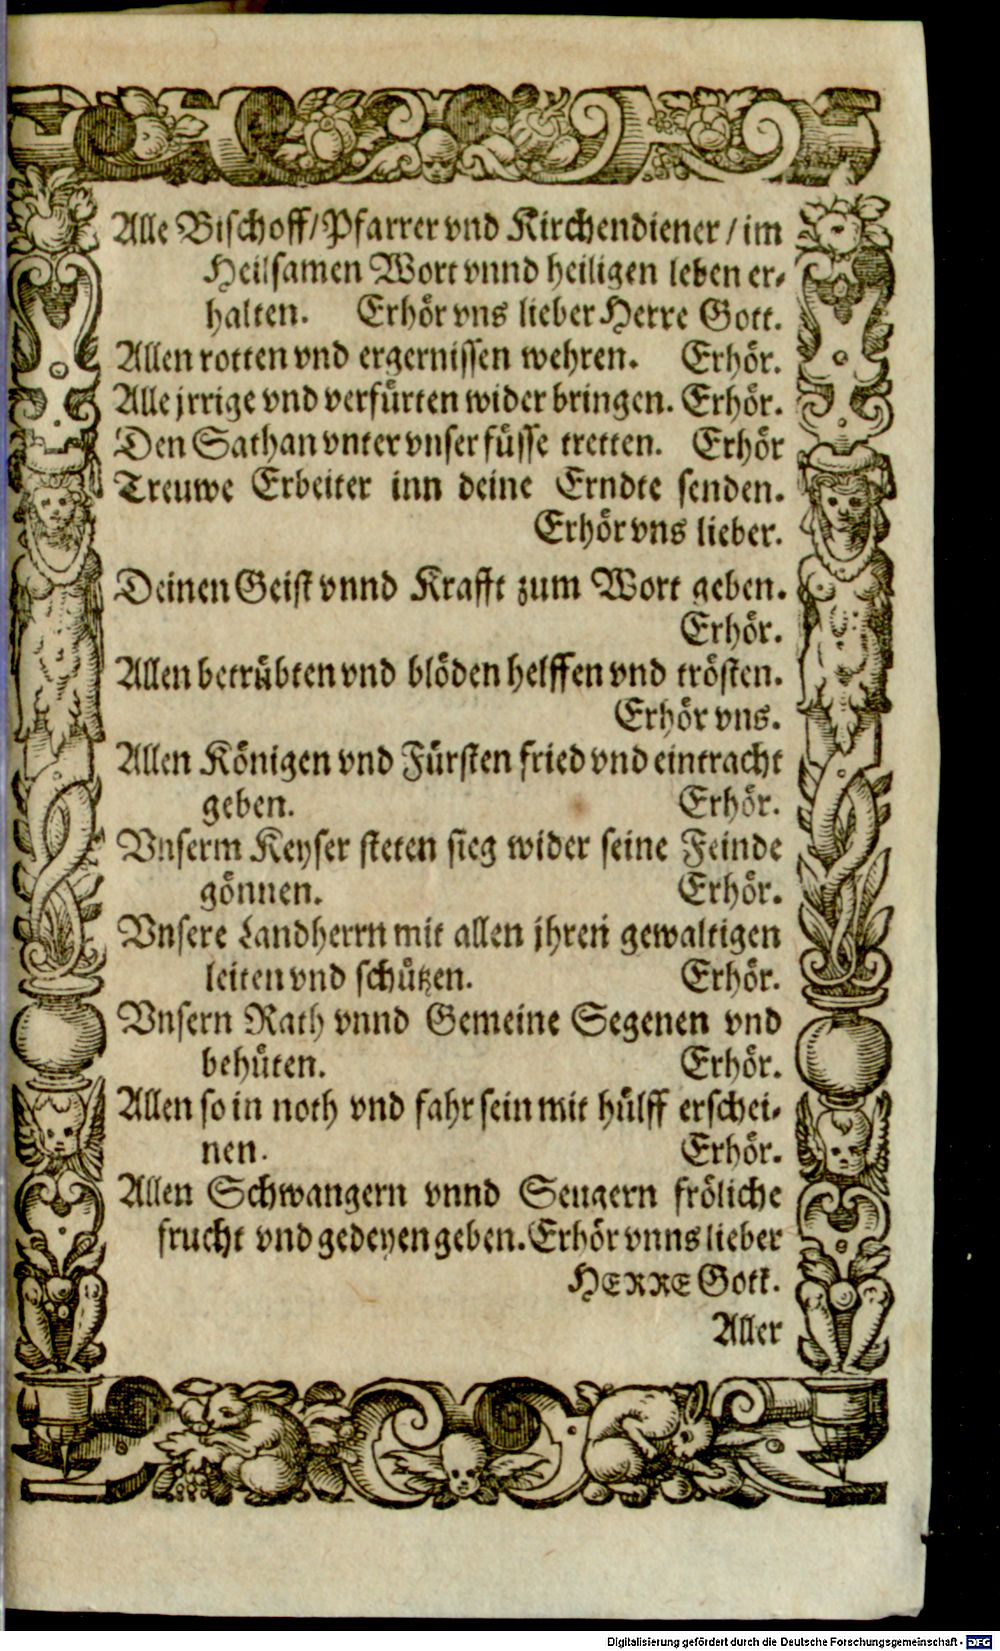 Alle Bischoff/Pfarrer vnd Kirchendiener/im
Heilsamen Wort vnnd heiligen leben er-
halten. Erhör vns lieber Herre Gott.
Allen rotten vnd ergernissen wehren. Erhör.
Alle jrrige vnd verfürten wider bringen. Erhör.
Den Sathan vnter vnser füsse tretten. Erhör
Treuwe Erbeiter inn deine Erndte senden.
Erhör vns lieber.
Deinen Geist vnnd Krafft zum Wort geben.
Erhör.
Allen betrübten vnd blöden helffen vnd trösten.
Erhör vns.
Allen Königen vnd Fürsten fried vnd eintracht
geben. Erhör.
Vnserm Keyser steten sieg wider seine Feinde
gönnen. Erhör.
Vnsere Landherrn mit allen jhren gewaltigen
leiten vnd schützen. Erhör.
Vnsern Rath vnnd Gemeine Segenen vnd
behüten. Erhör.
Allen so in noth vnd fahr sein mit hülff erschei-
nen. Erhör.
Allen Schwangern vnnd Seugern fröliche
frucht vnd gedeyen geben. Erhör vnns lieber
HERRE Gott.
Aller
Digitalisierung gefördert durch die Deutsche Forschungsgemeinschaft - DFG